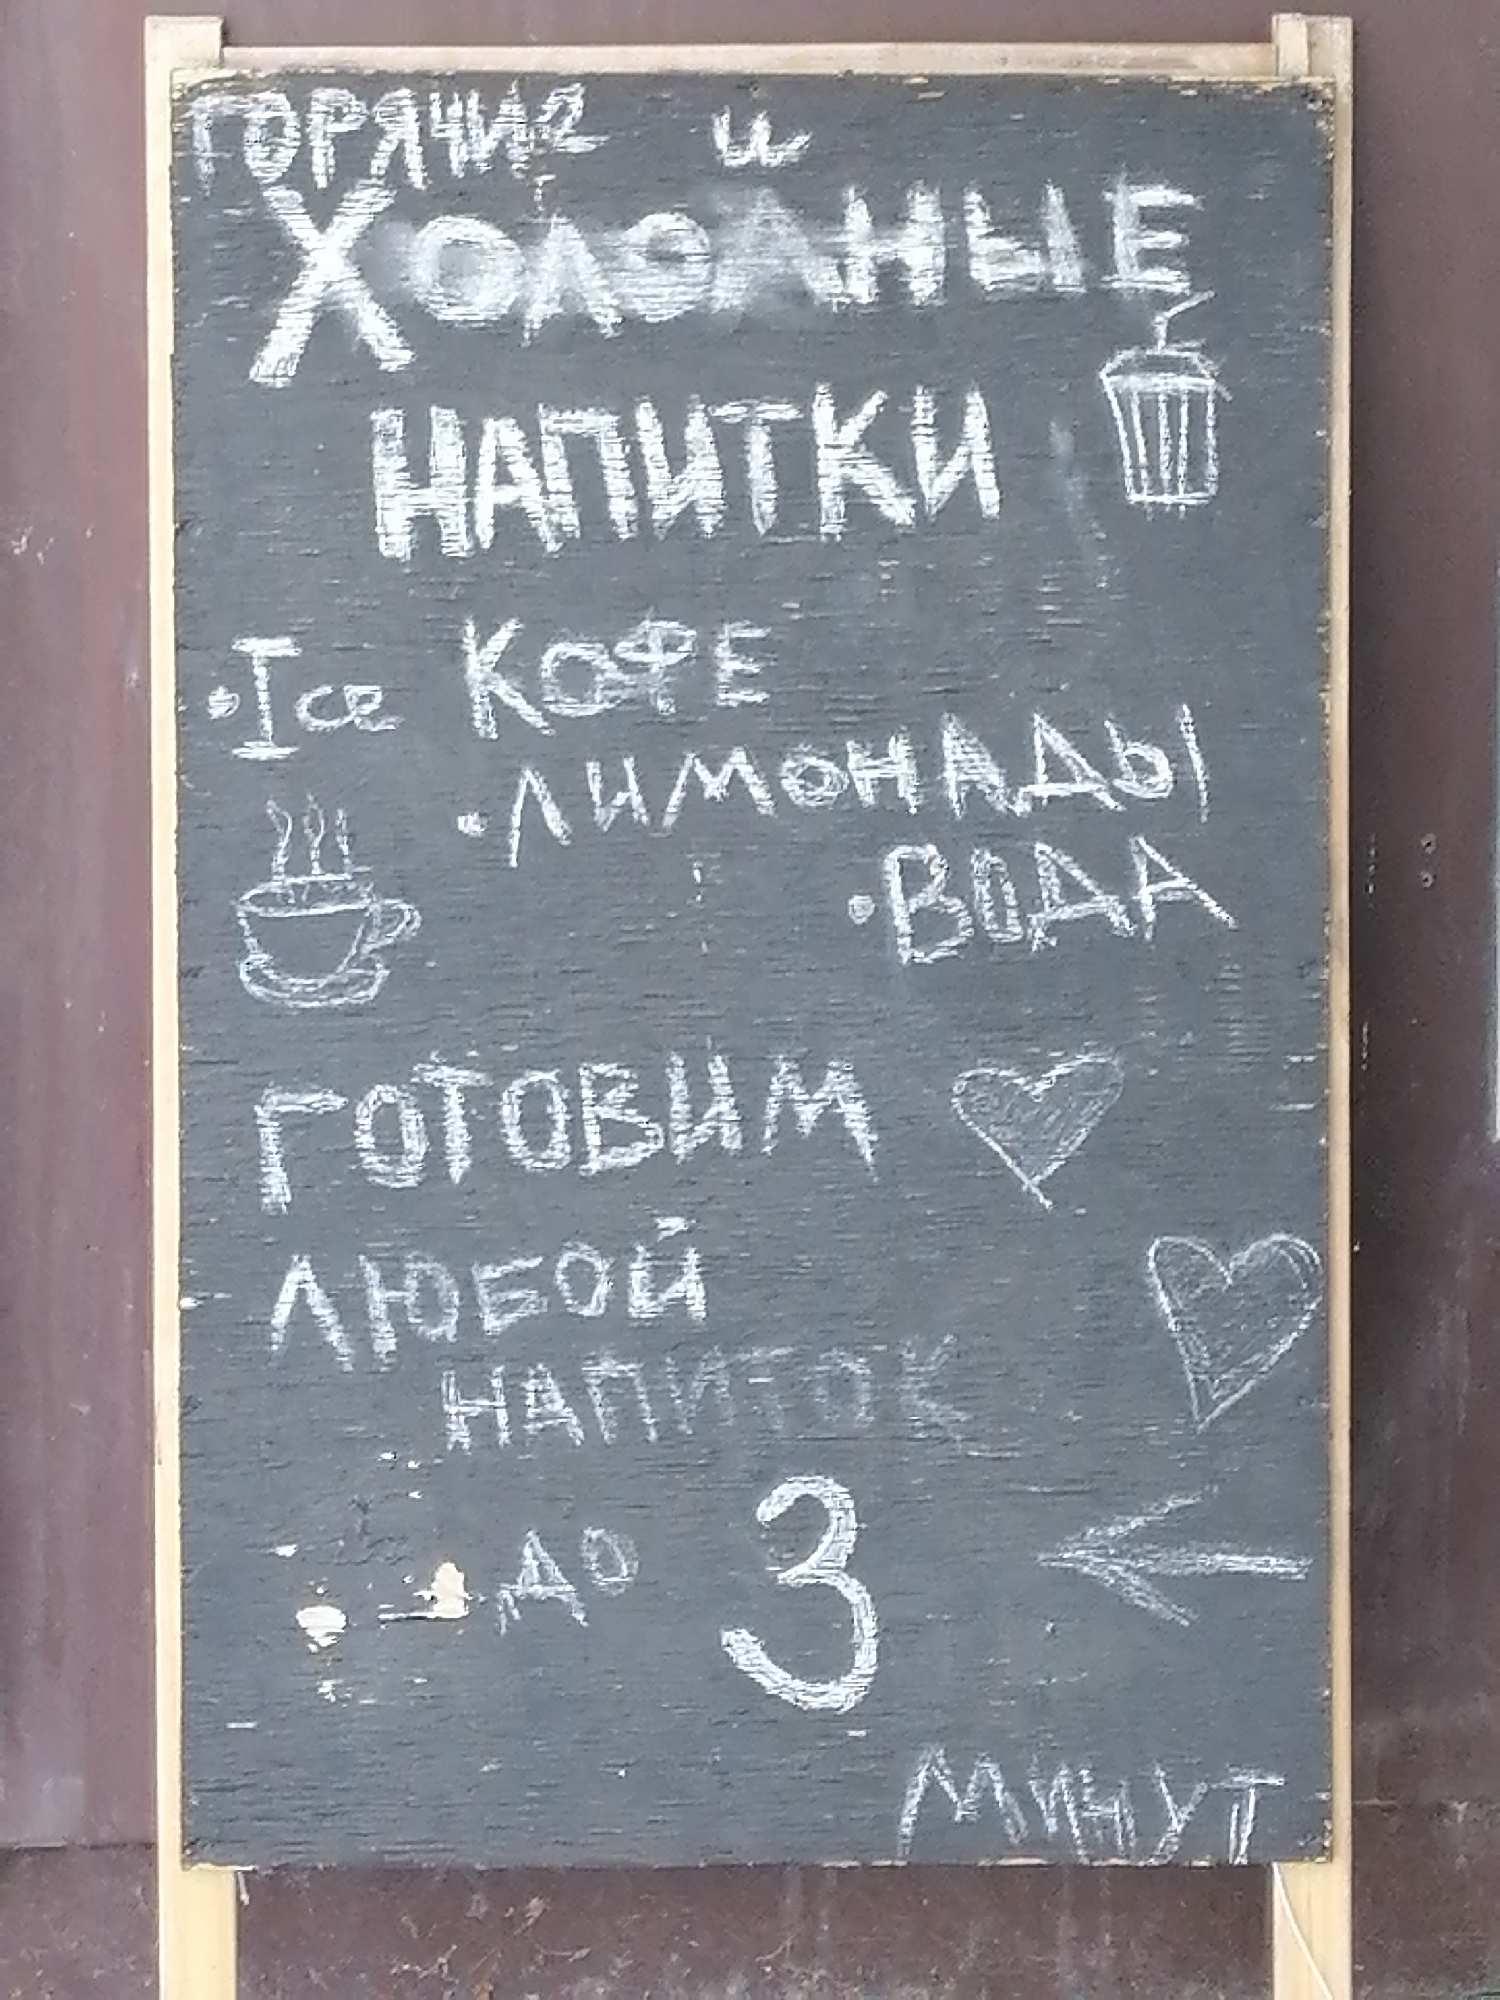 ГОРЯЧИе и
ХОЛОДНЫЕ
НАПИТКИ
•Ice КОФЕ
•ЛИМОНАДЫ
•ВОДА
ГОТОВИМ
ЛЮБОЙ
НАПИТОК
ДО 3
МИНУТ